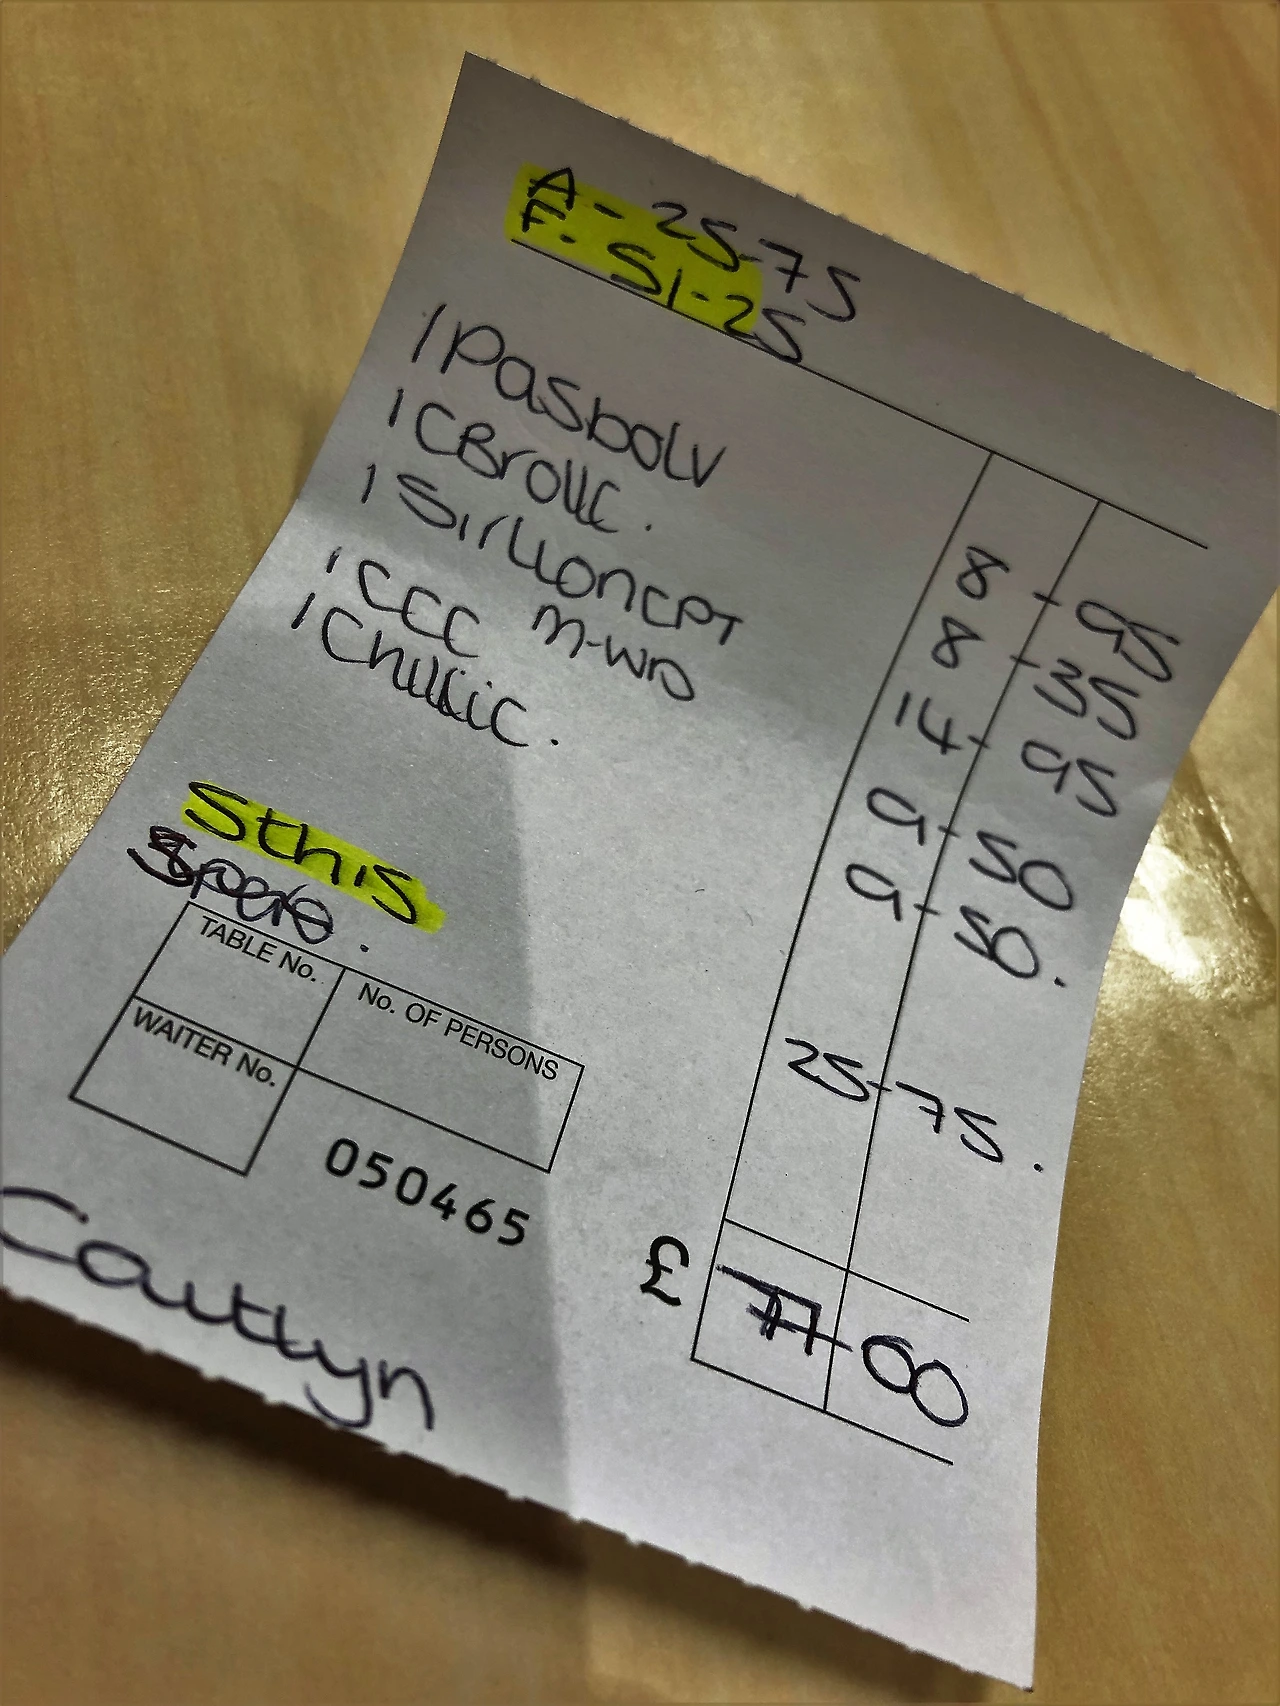 A - 25-75
F. 51-25
1 Pasbolv 8-95
1 CBrollC. 8-35
1 SirLLonCPT 14-95
1 CCC M-WD 9-50
1 ChilliC. 9-50.
25-75.
5this
TABLE No. No. OF PERSONS
WAITER No.
050465
£ 77-00
Caitlyn